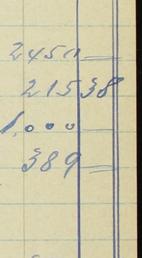 2450 —
215 38
1,000
389 —